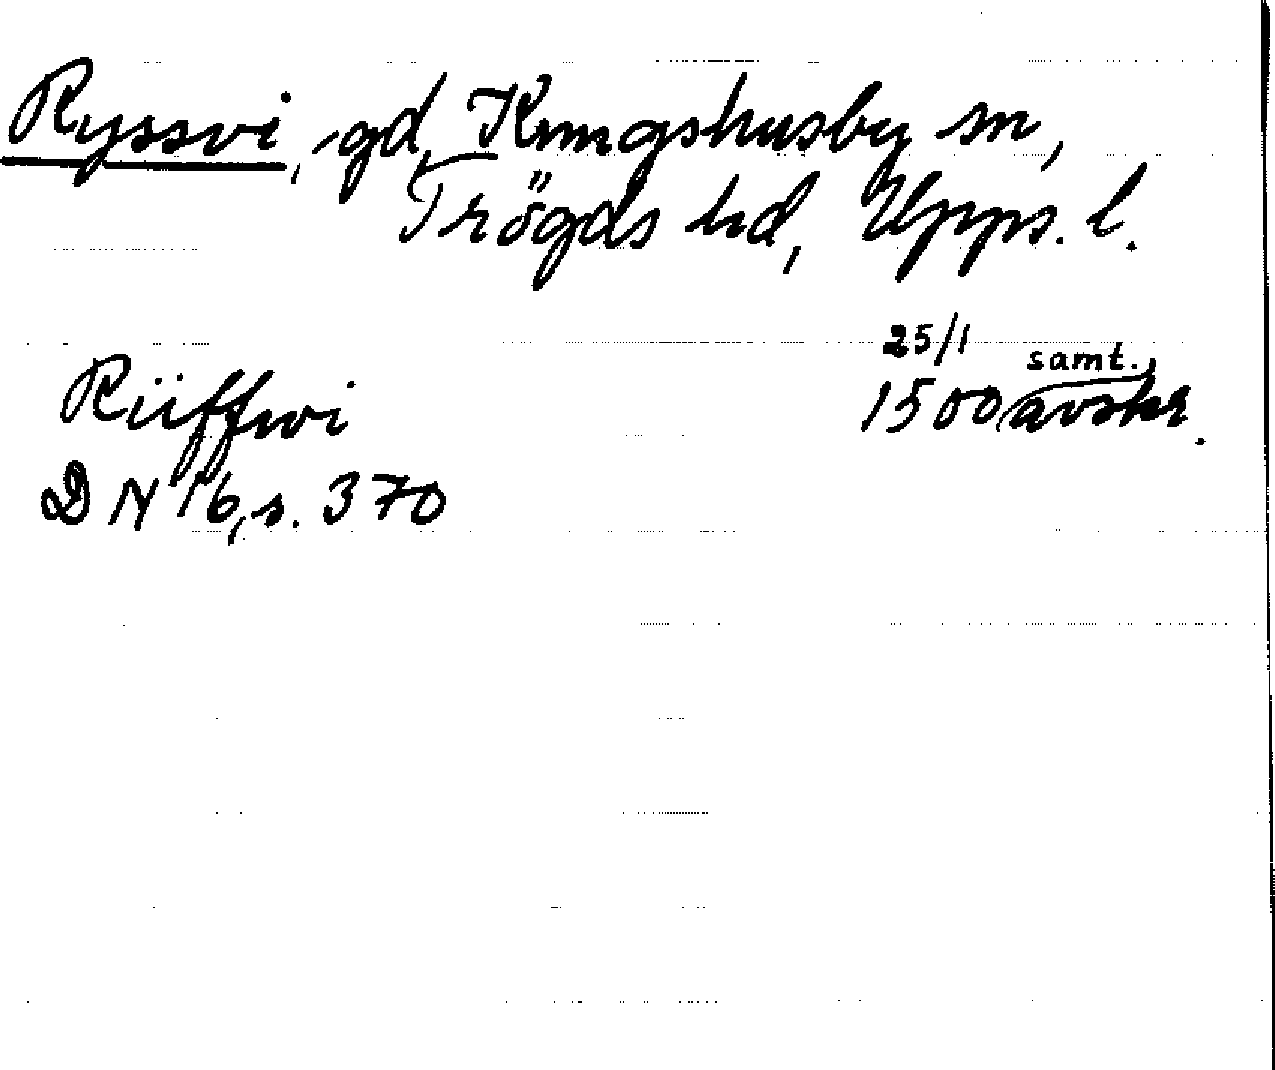 Ryssvi, gd, Kungshusby sn,
Trögds hd, Upps. l.
25/1 samt.
Rüffwi 1500 avskr.
DN 16, s. 370